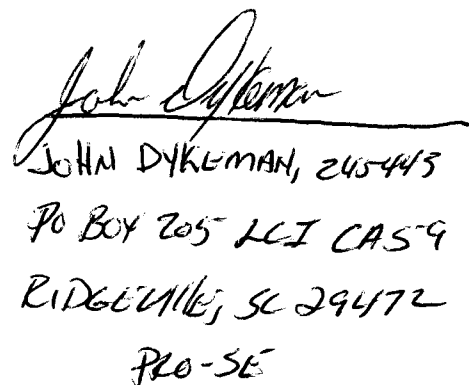 John Dykeman
JOHN DYKEMAN, 245443
PO BOX 205 LCI CA59
RIDGEVILLE, SC 29472
PRO-SE